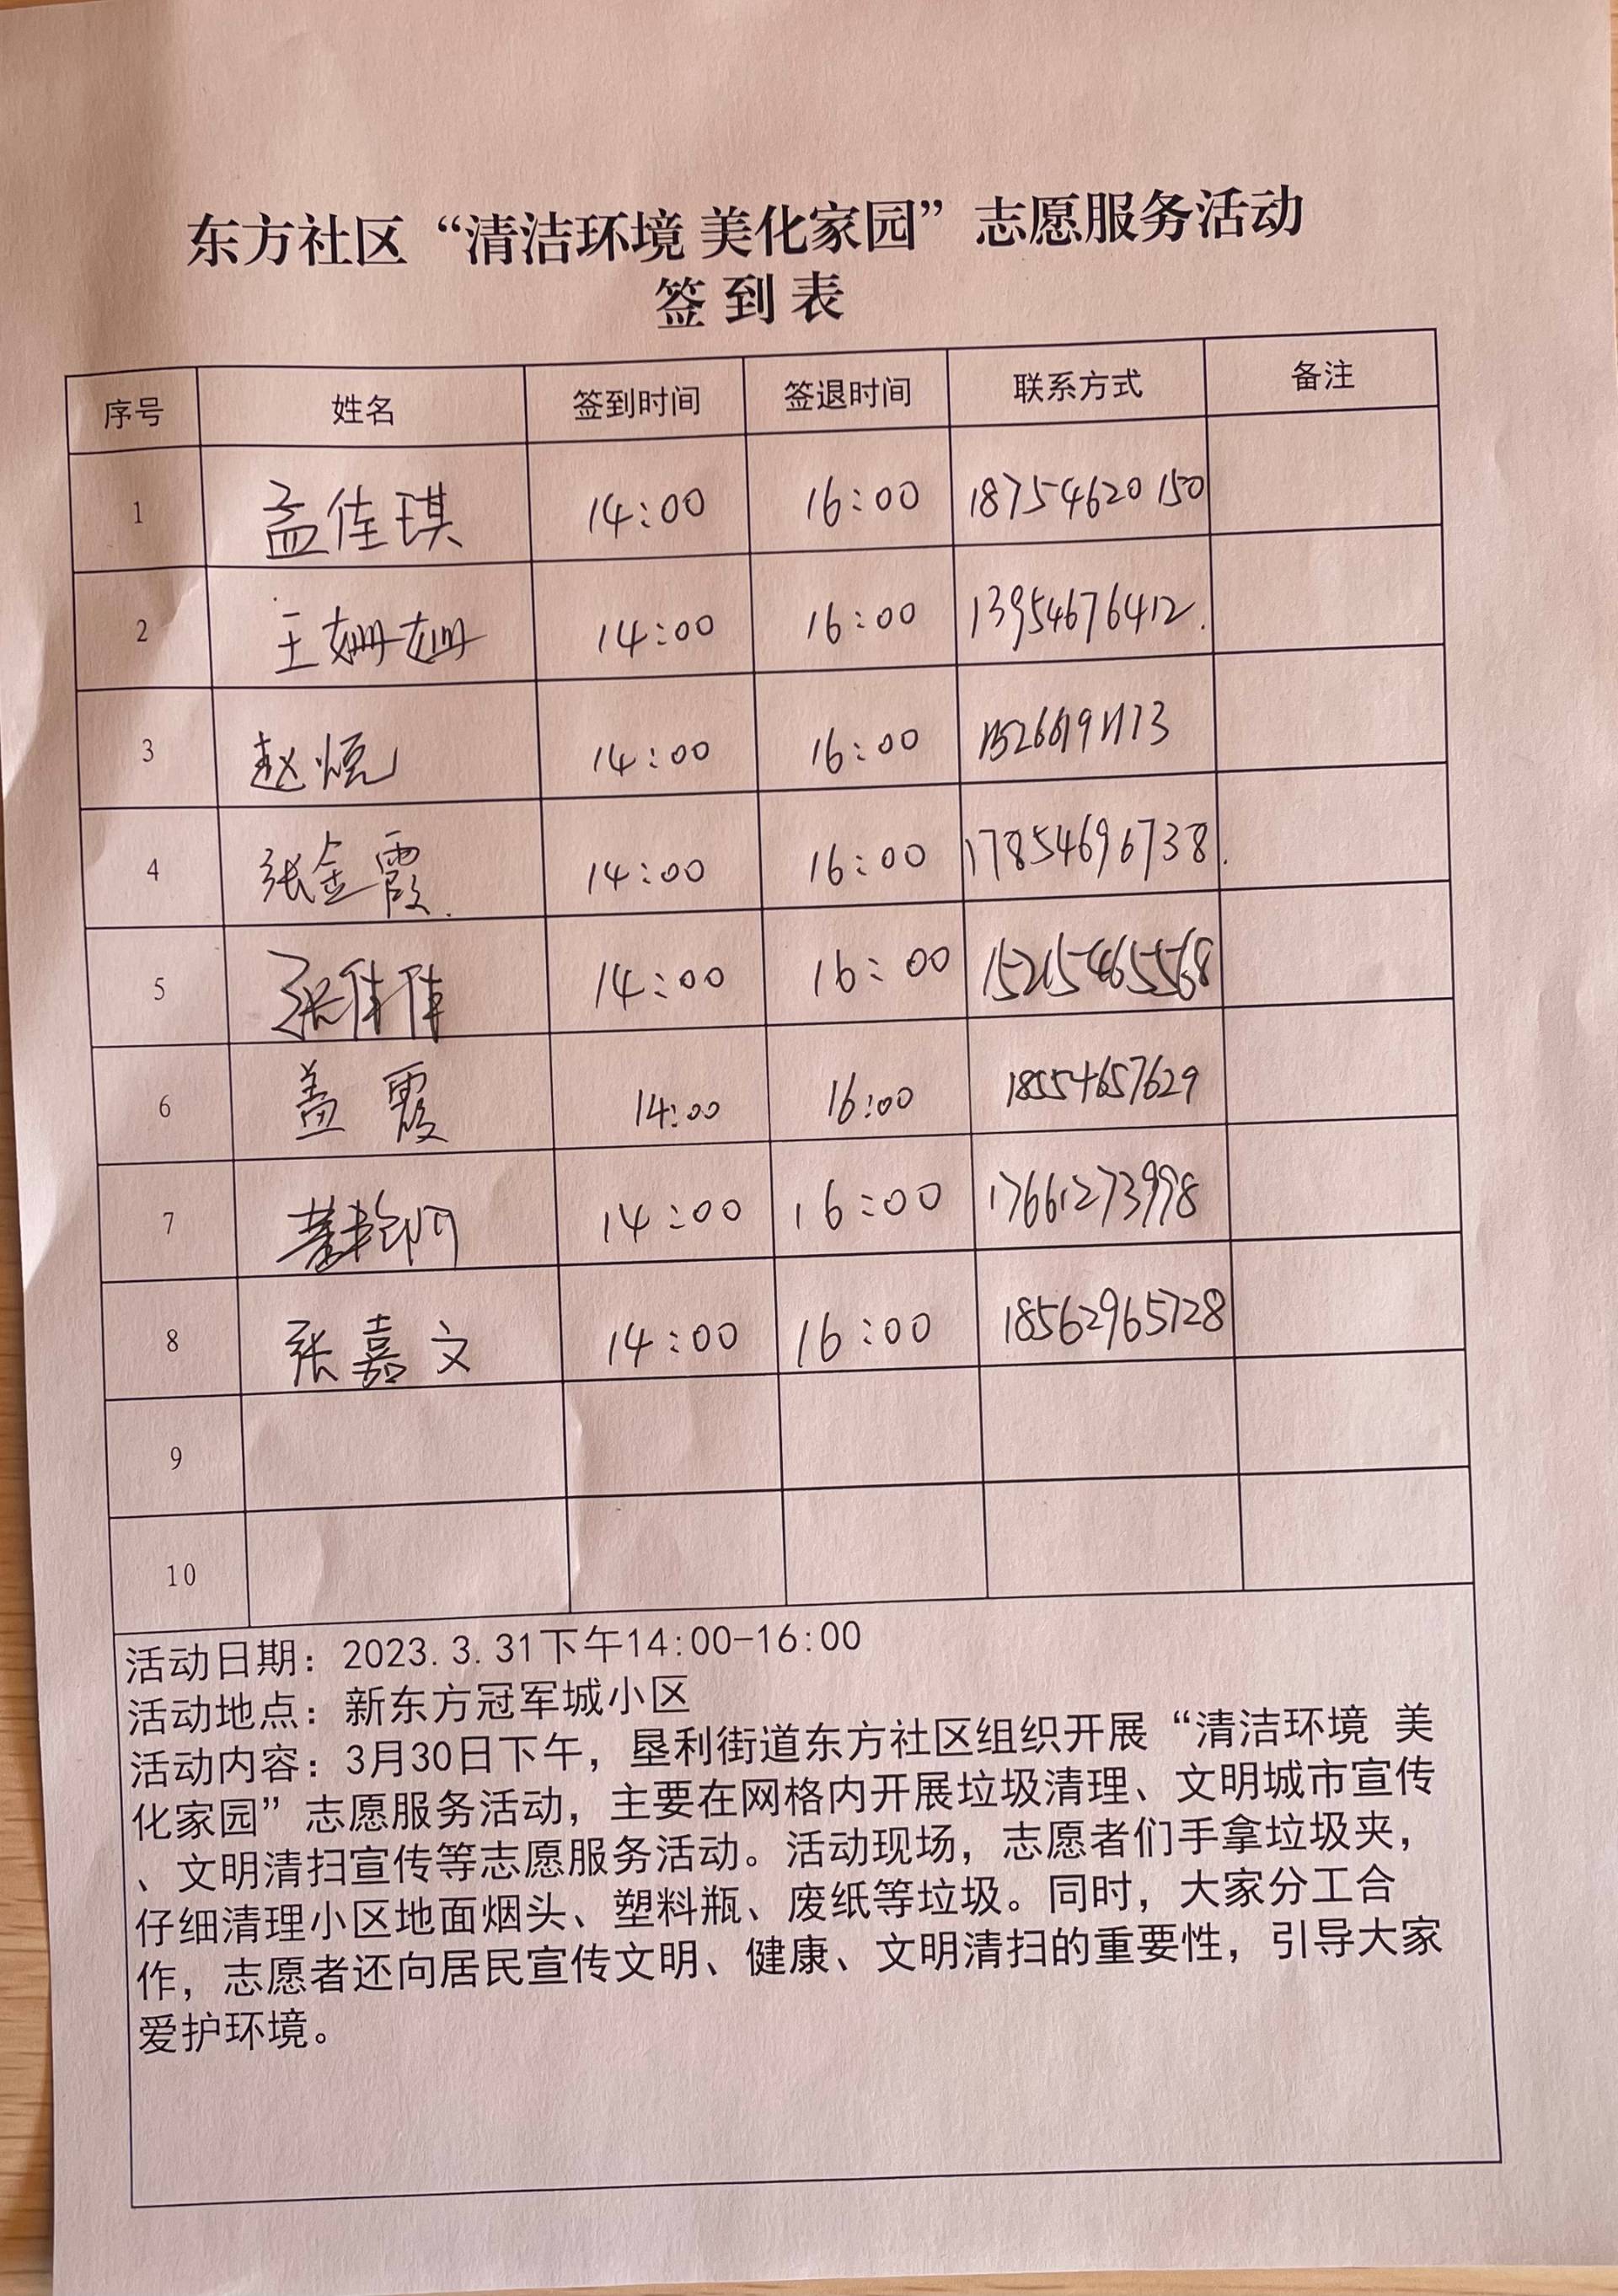 东方社区“清洁环境 美化家园”志愿服务活动
签到表
序号 姓名 签到时间 签退时间 联系方式 备注
1 孟佳琪 14:00 16:00 18754620150
2 王姗姗 14:00 16:00 13954676412.
3 赵悦 14:00 16:00
4 张金霞. 14:00 16:00 17854696738.
5 张伟伟 14:00 16:00 15215465568
6 盖霞 14:00 16:00 18554657629
7 14:00 16:00 17661273998
8 张嘉文 14:00 16:00 18562965728
9
10
活动日期：2023.3.31下午14:00-16:00
活动地点：新东方冠军城小区
活动内容：3月30日下午，垦利街道东方社区组织开展“清洁环境 美
化家园”志愿服务活动，主要在网格内开展垃圾清理、文明城市宣传
、文明清扫宣传等志愿服务活动。活动现场，志愿者们手拿垃圾夹，
仔细清理小区地面烟头、塑料瓶、废纸等垃圾。同时，大家分工合
作，志愿者还向居民宣传文明、健康、文明清扫的重要性，引导大家
爱护环境。